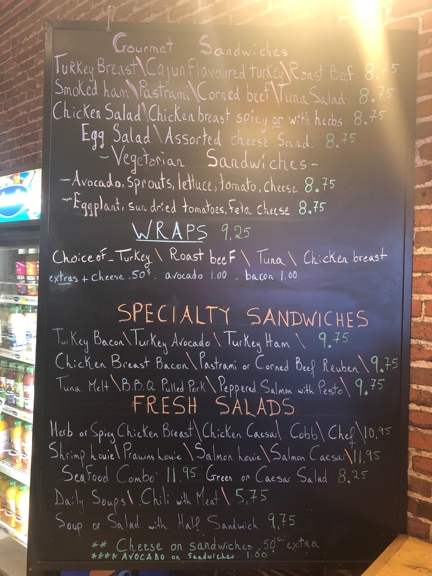 Gourmet Sandwiches
Turkey Breast\Cajun Flavoured turkey\Roast Beef 8.75
Smoked ham\Pastrami\Corned beef\Tuna Salad 8.75
Chicken Salad\Chicken breast spicy or with herbs 8.75
Egg Salad\Assorted cheese Sand. 8.75
-Vegetarian Sandwiches-
-Avocado, sprouts, lettuce, tomato, cheese 8.75
-Eggplant, sun dried tomatoes, feta cheese 8.75
WRAPS 9.25
Choice of - Turkey \ Roast beef \ Tuna \ Chicken breast
extras + cheese .50¢ - avocado 1.00 - bacon 1.00
SPECIALTY SANDWICHES
Turkey Bacon\Turkey Avocado\Turkey Ham \ 9.75
Chicken Breast Bacon\Pastrami or Corned Beef Reuben\9.75
Tuna Melt\B.B.Q Pulled Pork\Peppered Salmon with Pesto\9.75
FRESH SALADS
Herb or Spicy Chicken Breast\Chicken Caesar\Cobb\Chef\10,95
Shrimp Louie\Prawns Louie\Salmon Louie\Salmon Caesar\11,95
Seafood Combo 11.95 Green or Caesar Salad 8.25
Daily Soups\Chili with Meat\5,75
Soup or Salad with Half Sandwich 9,75
** Cheese on sandwiches .50¢ extra
**** Avocado on Sandwiches 1.00